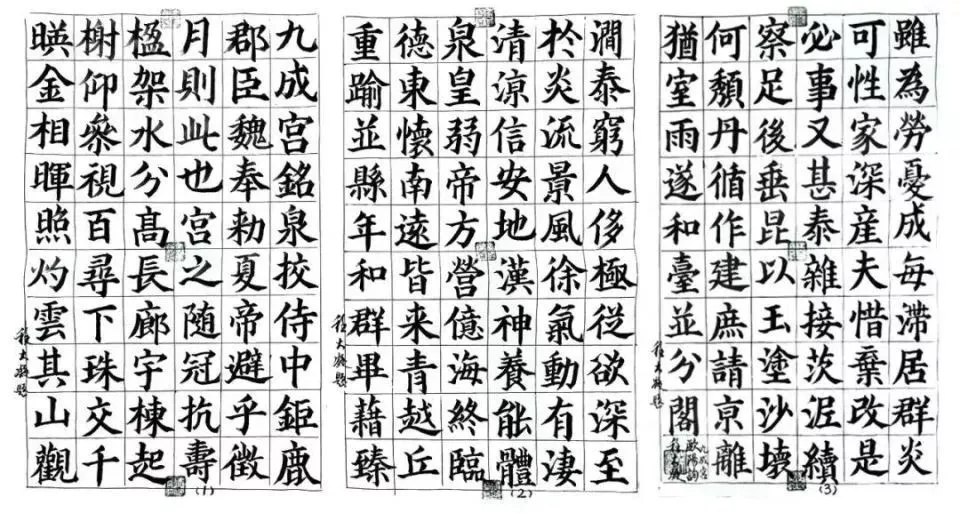 九成宫銘泉挍侍中鉅鹿
郡臣魏奉勑夏帝避乎徵
月則此也宫之随冠抗壽
楹架水分髙長廊宇棟起
榭仰叅視百尋下珠交千
暎金相暉照灼雲其山觀
(1)
澗泰窮人侈極從欲深至
於炎流景風徐氣動有淒
清涼信安地漢神養能體
泉皇弱帝方營億海終臨
德東懷南遠皆来青越丘
重踰並縣年和群畢藉臻
(2)
雖為勞憂成每滯居群炎
可性家深産夫惜棄改是
必事又甚泰雜接茨泥續
察足後垂昆以玉塗沙壞
何頽丹循作建庶請京離
猶室雨遂和臺並分閣
九成宫
歐陽詢
(3)